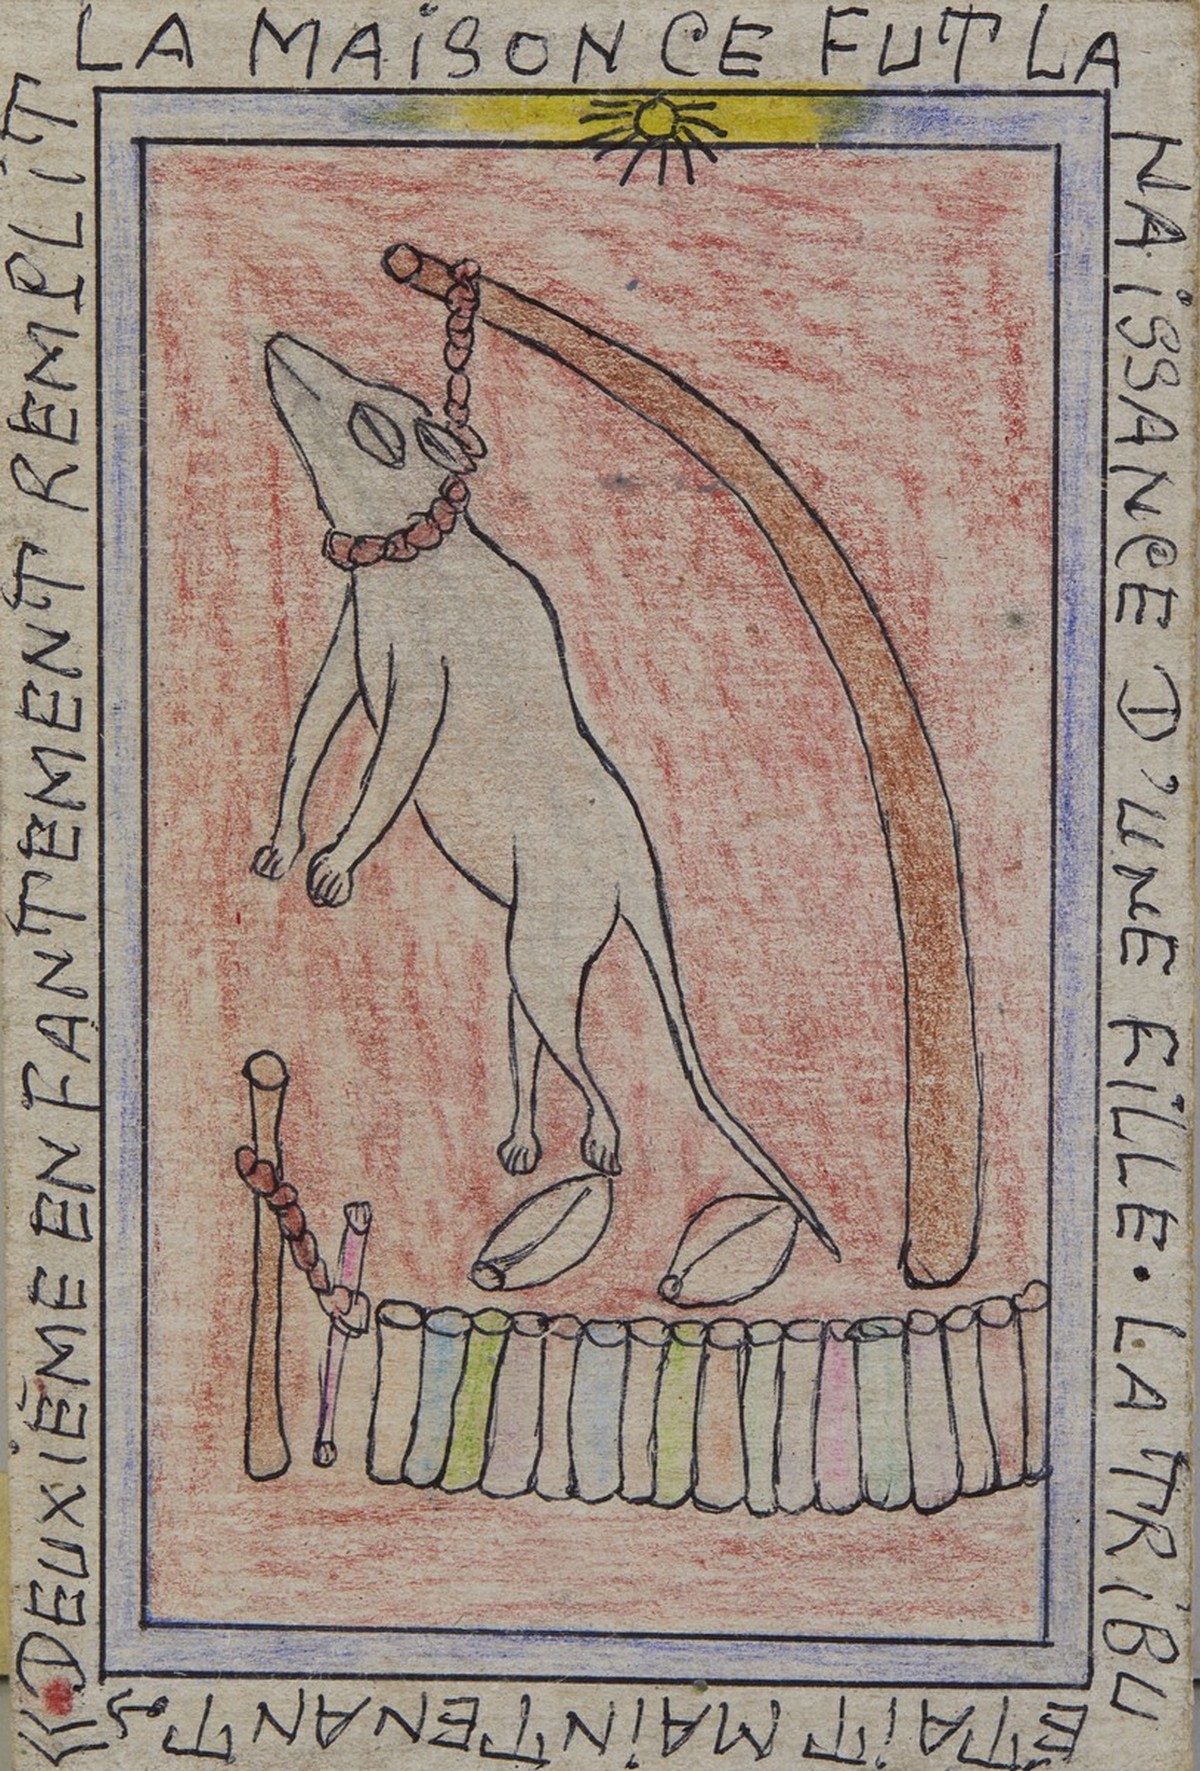 «DEUXIÈME ENFANTEMENT REMPLIT
LA MAISON CE FUT LA
NAISSANCE D'UNE FILLE. LA TRIBU
ÉTAIT MAINTENANT